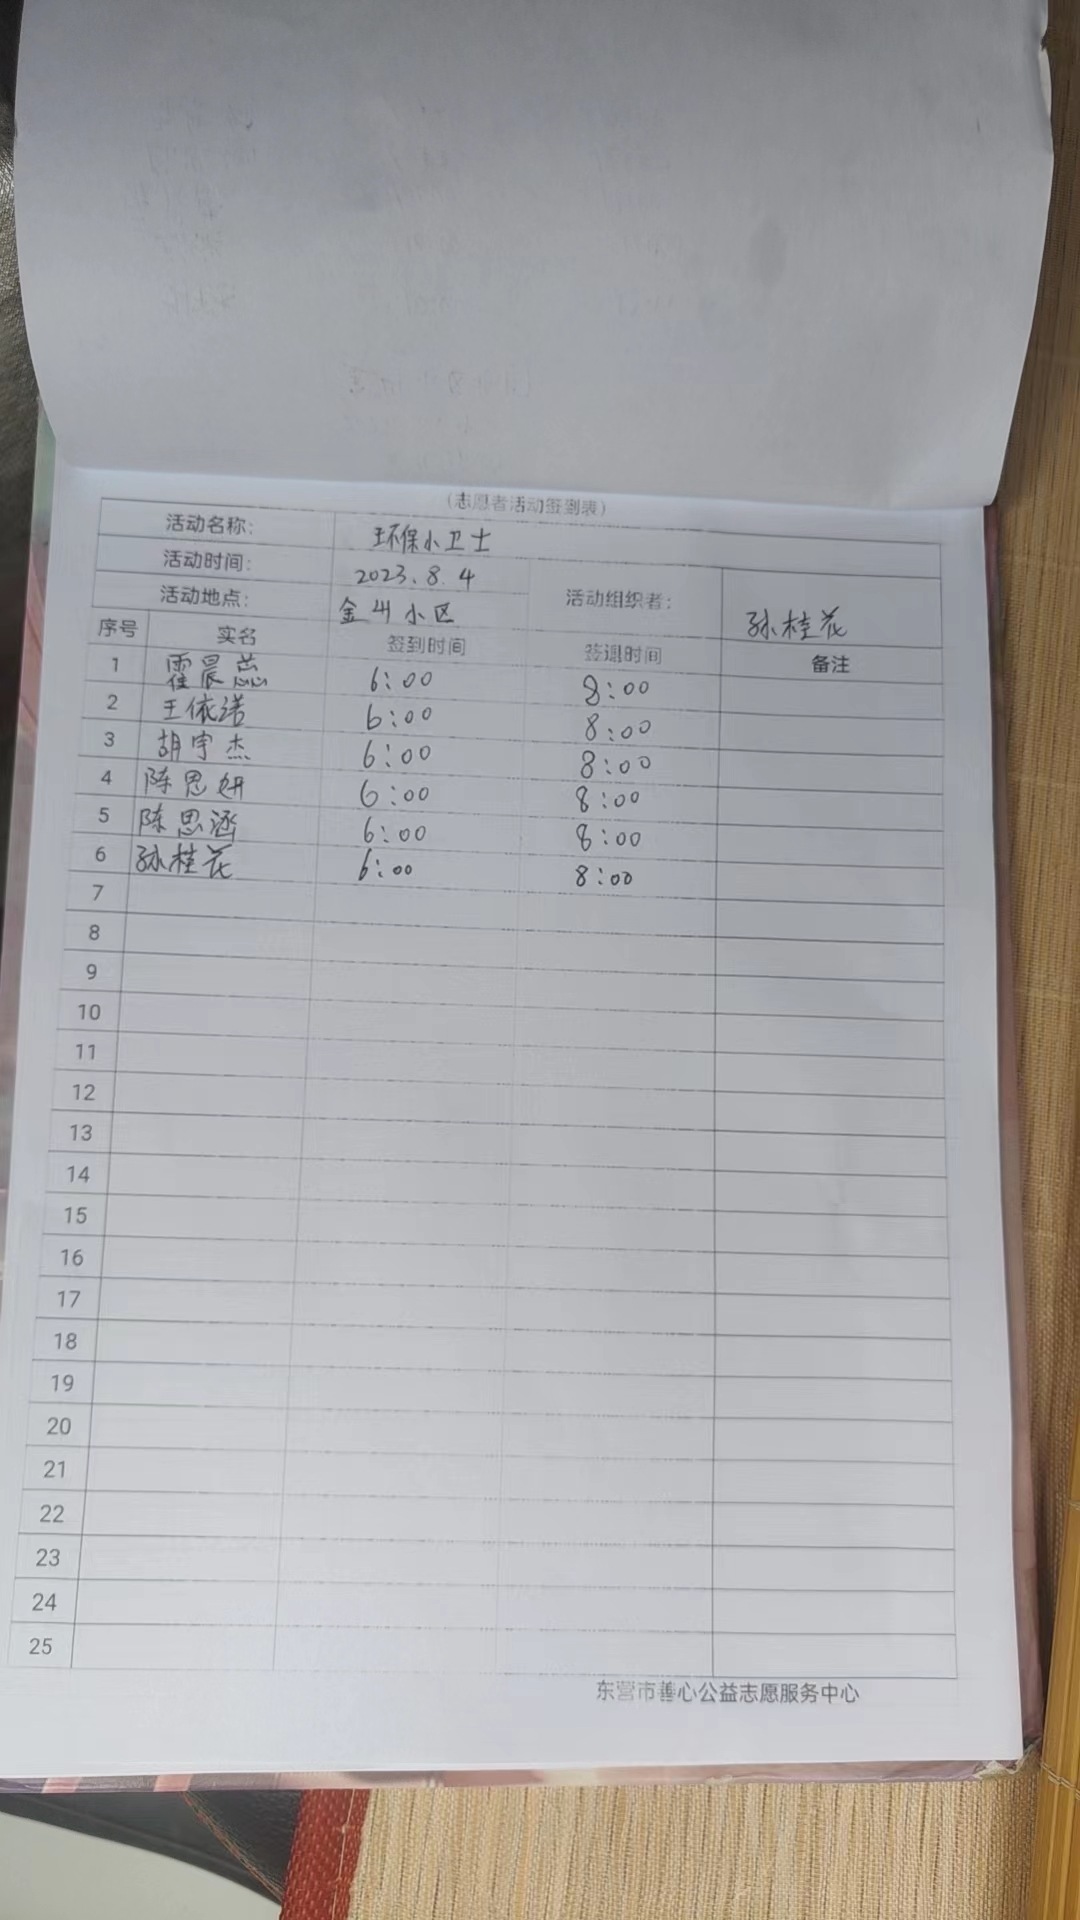 （志愿者活动签到表）
活动名称： 环保小卫士
活动时间： 2023.8.4
活动地点： 金州小区 活动组织者： 孙桂花
序号 实名 签到时间 签退时间 备注
1 霍晨蕊 6:00 8:00
2 王依诺 6:00 8:00
3 胡宇杰 6:00 8:00
4 陈思妍 6:00 8:00
5 陈思涵 6:00 8:00
6 孙桂花 6:00 8:00
7
8
9
10
11
12
13
14
15
16
17
18
19
20
21
22
23
24
25
东营市善心公益志愿服务中心